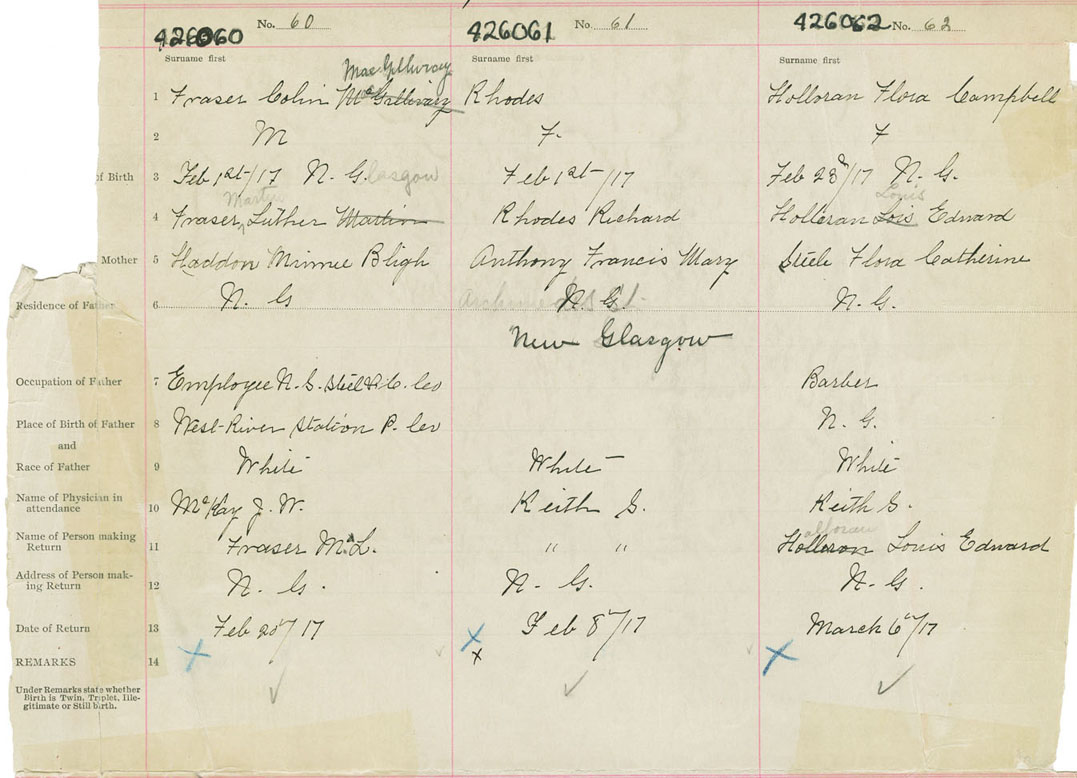 426060 No. 60 426061 No. 61 426062 No. 62
Surname first Surname first Surname first
MacGillivray
1 Fraser Colin McGillivary Rhodes Holloran Flora Campbell
2 M F. F
of Birth 3 Feb 1st/17 N. Glasgow Feb 1st/17 Feb 28/17 N. G.
Martin Louis
4 Fraser, Luther Martin Rhodes Richard Holloran Lois Edward
Mother 5 Haddon Minnie Bligh Anthony Francis Mary Steele Flora Catherine
Residence of Father 6 N. G N. G. N. G.
New Glasgow
Occupation of Father 7 Employee N. S. Steel & C. Co Barber
Place of Birth of Father 8 West River Station P. Co N. G.
and
Race of Father 9 White White White
Name of Physician in
attendance 10 McKay J. W. Keith S. Keith S.
Name of Person making
Return 11 Fraser M. L. " " Holloran Louis Edward
Address of Person mak-
ing Return 12 N. G. N. G. N. G.
Date of Return 13 Feb 20/17 Feb 8/17 March 6/17
REMARKS 14
Under Remarks state whether
Birth is Twin, Triplet, Ille-
gitimate or Still birth.